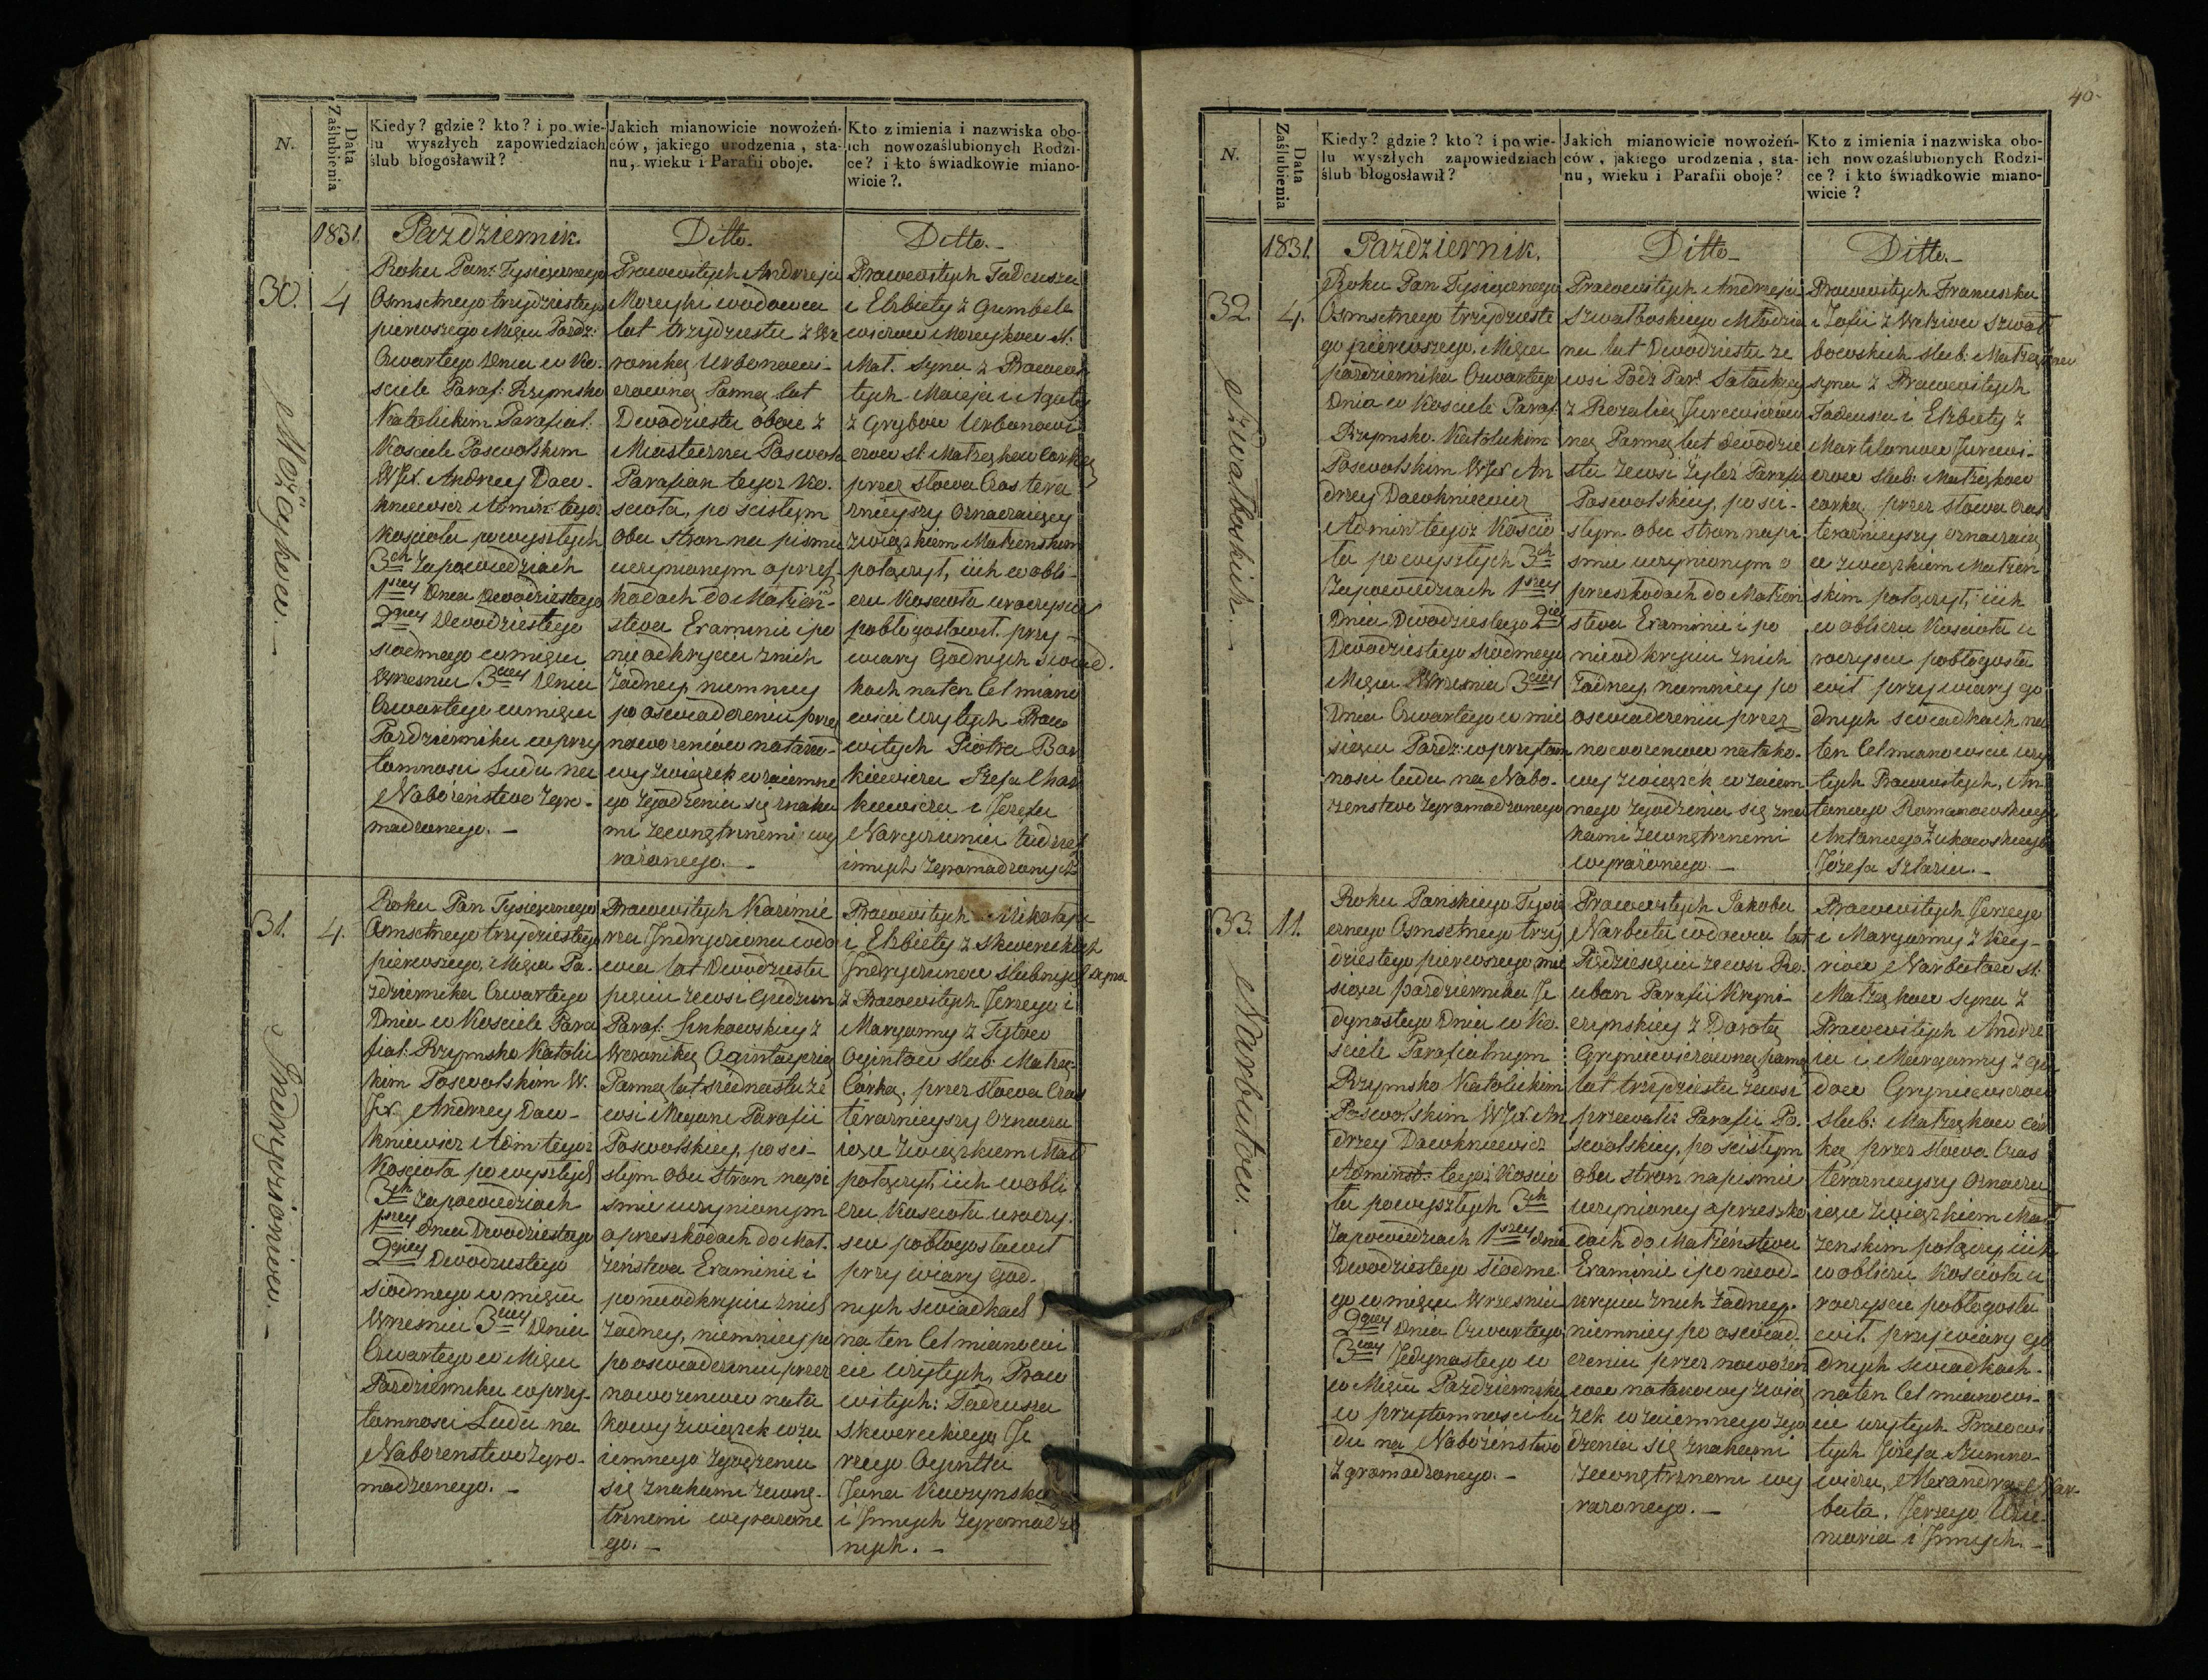 N.
Data Zaślubienia
Kiedy? gdzie? kto? i po wie-
lu wyszłych zapowiedziach
ślub błogosławił?
Jakich mianowicie nowożeń-
ców, jakiego urodzenia, sta-
nu, wieku i Parafii oboje.
Kto z imienia i nazwiska obo-
ich nowozaślubionych Rodzi-
ce? i kto świadkowie miano-
wicie?.
1831.
Pazdziernik.
Ditto.
Ditto.-
30.
4
Roku Pan: Tysięcznego
Osmsetnego trzydziestego
pierwszego Mięca Pazdz:
Czwartego Dnia w Ko-
sciele Paraf: Rzymsko
Katolickim Parafial:
Kosciele Poswolskim
WJX. Andrzey Daw-
kniewicz Admin: tegoz
Kosciola po wyszłych
3ch Zapowiedziach
1szey Dnia Dwodziestego
2giey Dwodziestego
siodmego w mięcu
Wrzesniu 3ciey Dnia
Czwartego w mięcu
Pazdzierniku w przy
tomnosci Ludu na
Nabożeństwo zgro-
madzonego. -
Prawowitych Andrzeja
Moreyki wdowca
lat trzydziestu z We
roniką Urbonowi-
czowną Panną lat
Dwodziestu oboie z
Miasteczka Poswola
Parafian tegoz Ko-
sciola, po scisłym
obu stron na pismie
uczynionym o przesz
kodach do Małżeń-
stwa Examinie i po
nieodkryciu z nich
żadney, niemniey
po oswiadczeniu przez
nowożeńców na tako-
wy związek wzaiemne
go zgodzenia się znaka
mi zewnętrznemi wy
rażonego. -
Prawowitych Tadeusza
i Elzbiety z Gumbele
wiczow Moreykow Sl:
Mał. syna z Prawowi
tych Macieja i Agaty
z Grybow Urbonowi
czow Sl. Małżąkow Corką
przez słowa Czas tera
znieyszy oznaczaiący
związkiem Małżenskim
połączył, iich w obli-
czu Kosciola uroczyscie
pobłogosławił. przy
wiary Godnych swiad.
kach na ten Cel miano
wicie Użytych Prawo
witych Piotra Bar
kiewicza Józefa Char
kiewicza i Jozefa
Narguniu tudzież
innych zgromadzonych
Możaykow. -
31.
4.
Roku Pan Tysięcznego
Osmsetnego trzydziestego
pierwszego, Mięca Pa-
zdziernika Czwartego
Dnia w Kosciele Para
fial: Rzymsko Katolic
kim Poswolskim W.
JX. Andrzey Daw-
kniewicz Adm: tegoz
Kosciola po wyszłych
3ch Zapowiedziach
1szey Dnia Dwodziestego
2giey Dwodziestego
siodmego w mięcu
Wrzesniu 3ciey Dnia
Czwartego w Mięcu
Pazdzierniku w przy-
tomnosci Ludu na
Nabożenstwo zgro-
madzonego. -
Prawowitych Kazimie
rza Jndryziona wdo
wca lat Dwodziestu
pięciu zewsi
Paraf: z
Weroniką
Panną lat siedmnastu ze
wsi Parafii
Poswolskiey, po sci-
słym obu Stron napi
smie uczynionym
o przeszkodach do Mał.
żeństwa Examinie i
po nieodkryciu z nich
żadney, niemniey po
po oswiadczeniu przez
nowożeńcow na ta
kowy związek wza
iemnego zgodzenia
się znakami zewnę-
trznemi wyrażone
go. -
Prawowitych Mikołaja
i Elzbiety z Skwereckich
Jndryzunow slubnych syna
z Prawowitych Jerzego i
Maryanny z Tytow
Ogintow slub: Małżą:
Córką, przez słowa Czas
teraznieyszy Oznacza
iącu Związkiem Mał
połączył, iich w obli
czu Kosciola uroczy-
scie pobłogosławił
przy wiary God-
nych swiadkach
na ten Cel mianowi
cie użytych, Prawo
witych: Tadeusza
Skwereckiego Je
rzego Oginta
Jana Kuczynskie
i Jnnych zgromadzo
nych. -
Jndryzioniow. -
40-
N.
Data Zaślubienia
Kiedy? gdzie? kto? i po wie-
lu wyszłych zapowiedziach
ślub błogosławił?
Jakich mianowicie nowożeń-
ców, jakiego urodzenia, sta-
nu, wieku i Parafii oboje?
Kto z imienia i nazwiska obo-
ich nowozaślubionych Rodzi-
ce? i kto świadkowie miano-
wicie?
1831.
Pazdziernik.
Ditto-
Ditto.-
32.
4.
Roku Pan Tysięcznego
Osmsetnego trzydzieste
go pierwszego, Mięca
pazdziernika Czwartego
Dnia w Kosciele Paraf:
Rzymsko-Katolickim
Poswolskim WJX An
drzey Dawkniewicz
Admin tegoż Koscio
ła po wyszłych 3ch
Zapowiedziach 1szey
Dnia Dwodziestego 2giey
Dwodziestego siodmego
Mięca Wrzesnia 3ciey
Dnia Czwartego w mie
sięcu Pazdz: w przytom
nosci ludu na Nabo-
żeństwo zgromadzonego
Prawowitych Andrzeja
Szwatboskiego Młodzia
na lat Dwodziestu ze
wsi
z Rozalią Jurewiczow
ną Panną lat Dwodzie
stu zewsi Parafii
Poswolskiey, po sci-
słym obu stron napi
smie uczynionym o
przeszkodach do Małżeń
stwa Examinie i po
nieodkryciu z nich
żadney, niemniey po
oswiadczeniu przez
nowożencow na tako-
wy związek wzaiem
nego zgodzenia się zna
kami zewnętrznemi
wyrażonego. -
Prawowitych Franciszka
i Zofii z Szwat
bowskich slub: Małżąkow
syna z Prawowitych
Tadeusza i Elzbiety z
Jurewi-
czow slub: Małżąkow
corką, przez słowa Czas
terazнieyszy oznaczaią
cu związkiem Małżeń
skim połączył, iich
w obliczu Kosciola u
roczyscie pobłogosła
wił przy wiary go
dnych swiadkach na
ten Cel mianowicie uży
tych Prawowitych, An
toniego Romanowskiego
Antoniego Żukowskiego
Józefa Szlazia. -
Szwatboskich. -
33.
11.
Roku Panskiego Tysią
cznego Osmsetnego trzy
dziestego pierwszego mie
sięca pazdziernika Je
dynastego Dnia w Ko-
sciele Parafialnym
Rzymsko Katolickim
Poswolskim WJX An
drzey Dawkniewicz
Administ: tegoż Koscio
ła po wyszłych 3ch
Zapowiedziach 1szey dnia
Dwodziestego siodme
go w mięcu Wrzesniu
2giey Dnia Czwartego
3ciey Jedynastego w
w Mięcu Pazdzierniku
w przytomnosci lu
du na Nabożeństwo
zgromadzonego. -
Prawowitych Jakoba
Narbuta wdowca lat
Pięcdziesięciu zewsi
Parafii Kryni-
czynskiey z Dorotą
Gryniewiczowną panną
lat trzydziestu zewsi
Parafii Po-
swolskiey, po scisłym
obu stron na pismie
uczynioney o przeszko
dach do Małżeństwa
Examinie i po nieod-
kryciu z nich żadney,
niemniey po oswiad-
czeniu przez nowożeń
cow na takowy zwią
zek wzaiemnego zgo
dzenia się znakami
zewnętrznemi wy
rażonego. -
Prawowitych Jerzego
i Maryanny z
Narbutow sl:
Małżąkow syna z
Prawowitych Andrze
ia i Maryanny z
Gryniewiczow
Slub: Małżąkow cór
ką przez słowa Czas
terazнieyszy oznacza
iącu związkiem Mał
żenskim połączył, iich
w obliczu Kościola u
roczyscie pobłogosła
wił, przy wiary go
dnych swiadkach
na ten Cel mianowi-
cie użytych Prawowi
tych Józefa Szumno-
wicza, Alexandra Nar-
buta, Jerzego
i Jnnych. -
Narbutow. -